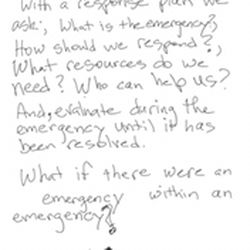 With a response plan we
ask:, What is the emergency?,
How should we respond?,
What resources do we
need? Who can help us?
And, evaluate during the
emergency until it has
been resolved.
What if there were an
emergency within an
emergency?